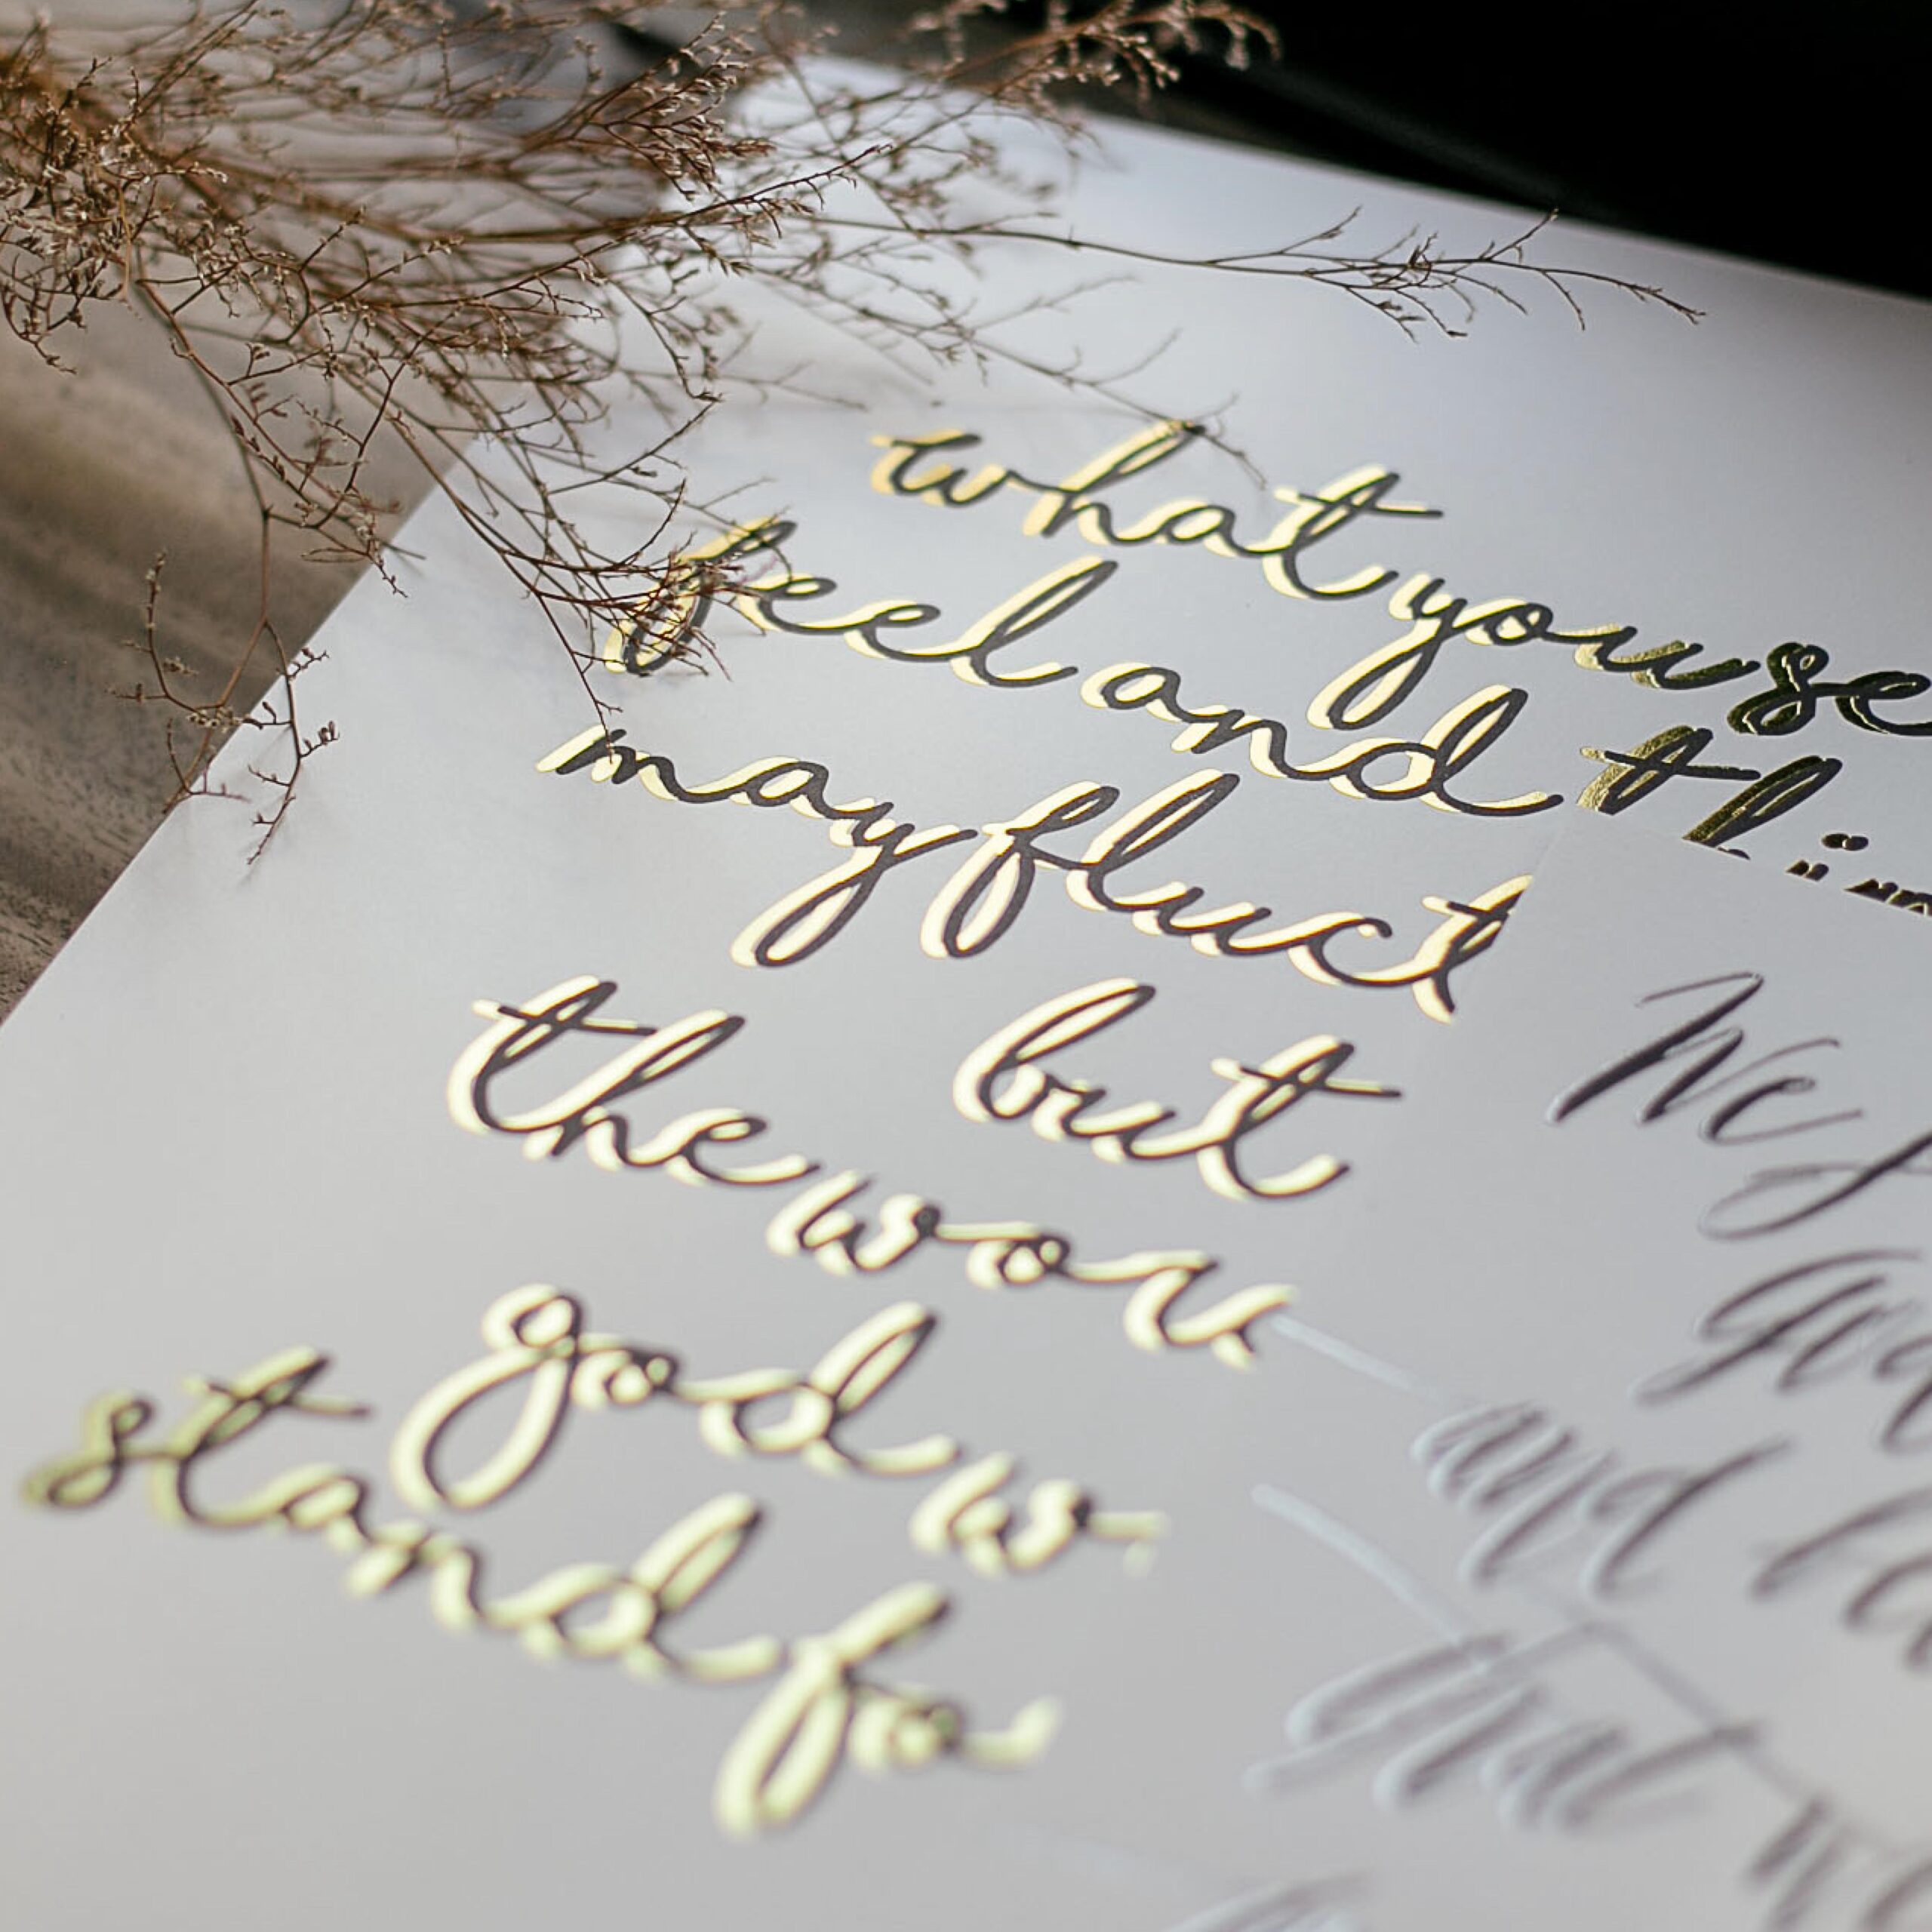 what you se
feel and thin
may fluct
but
the wor
god w
stand fo
We
God
and
that w